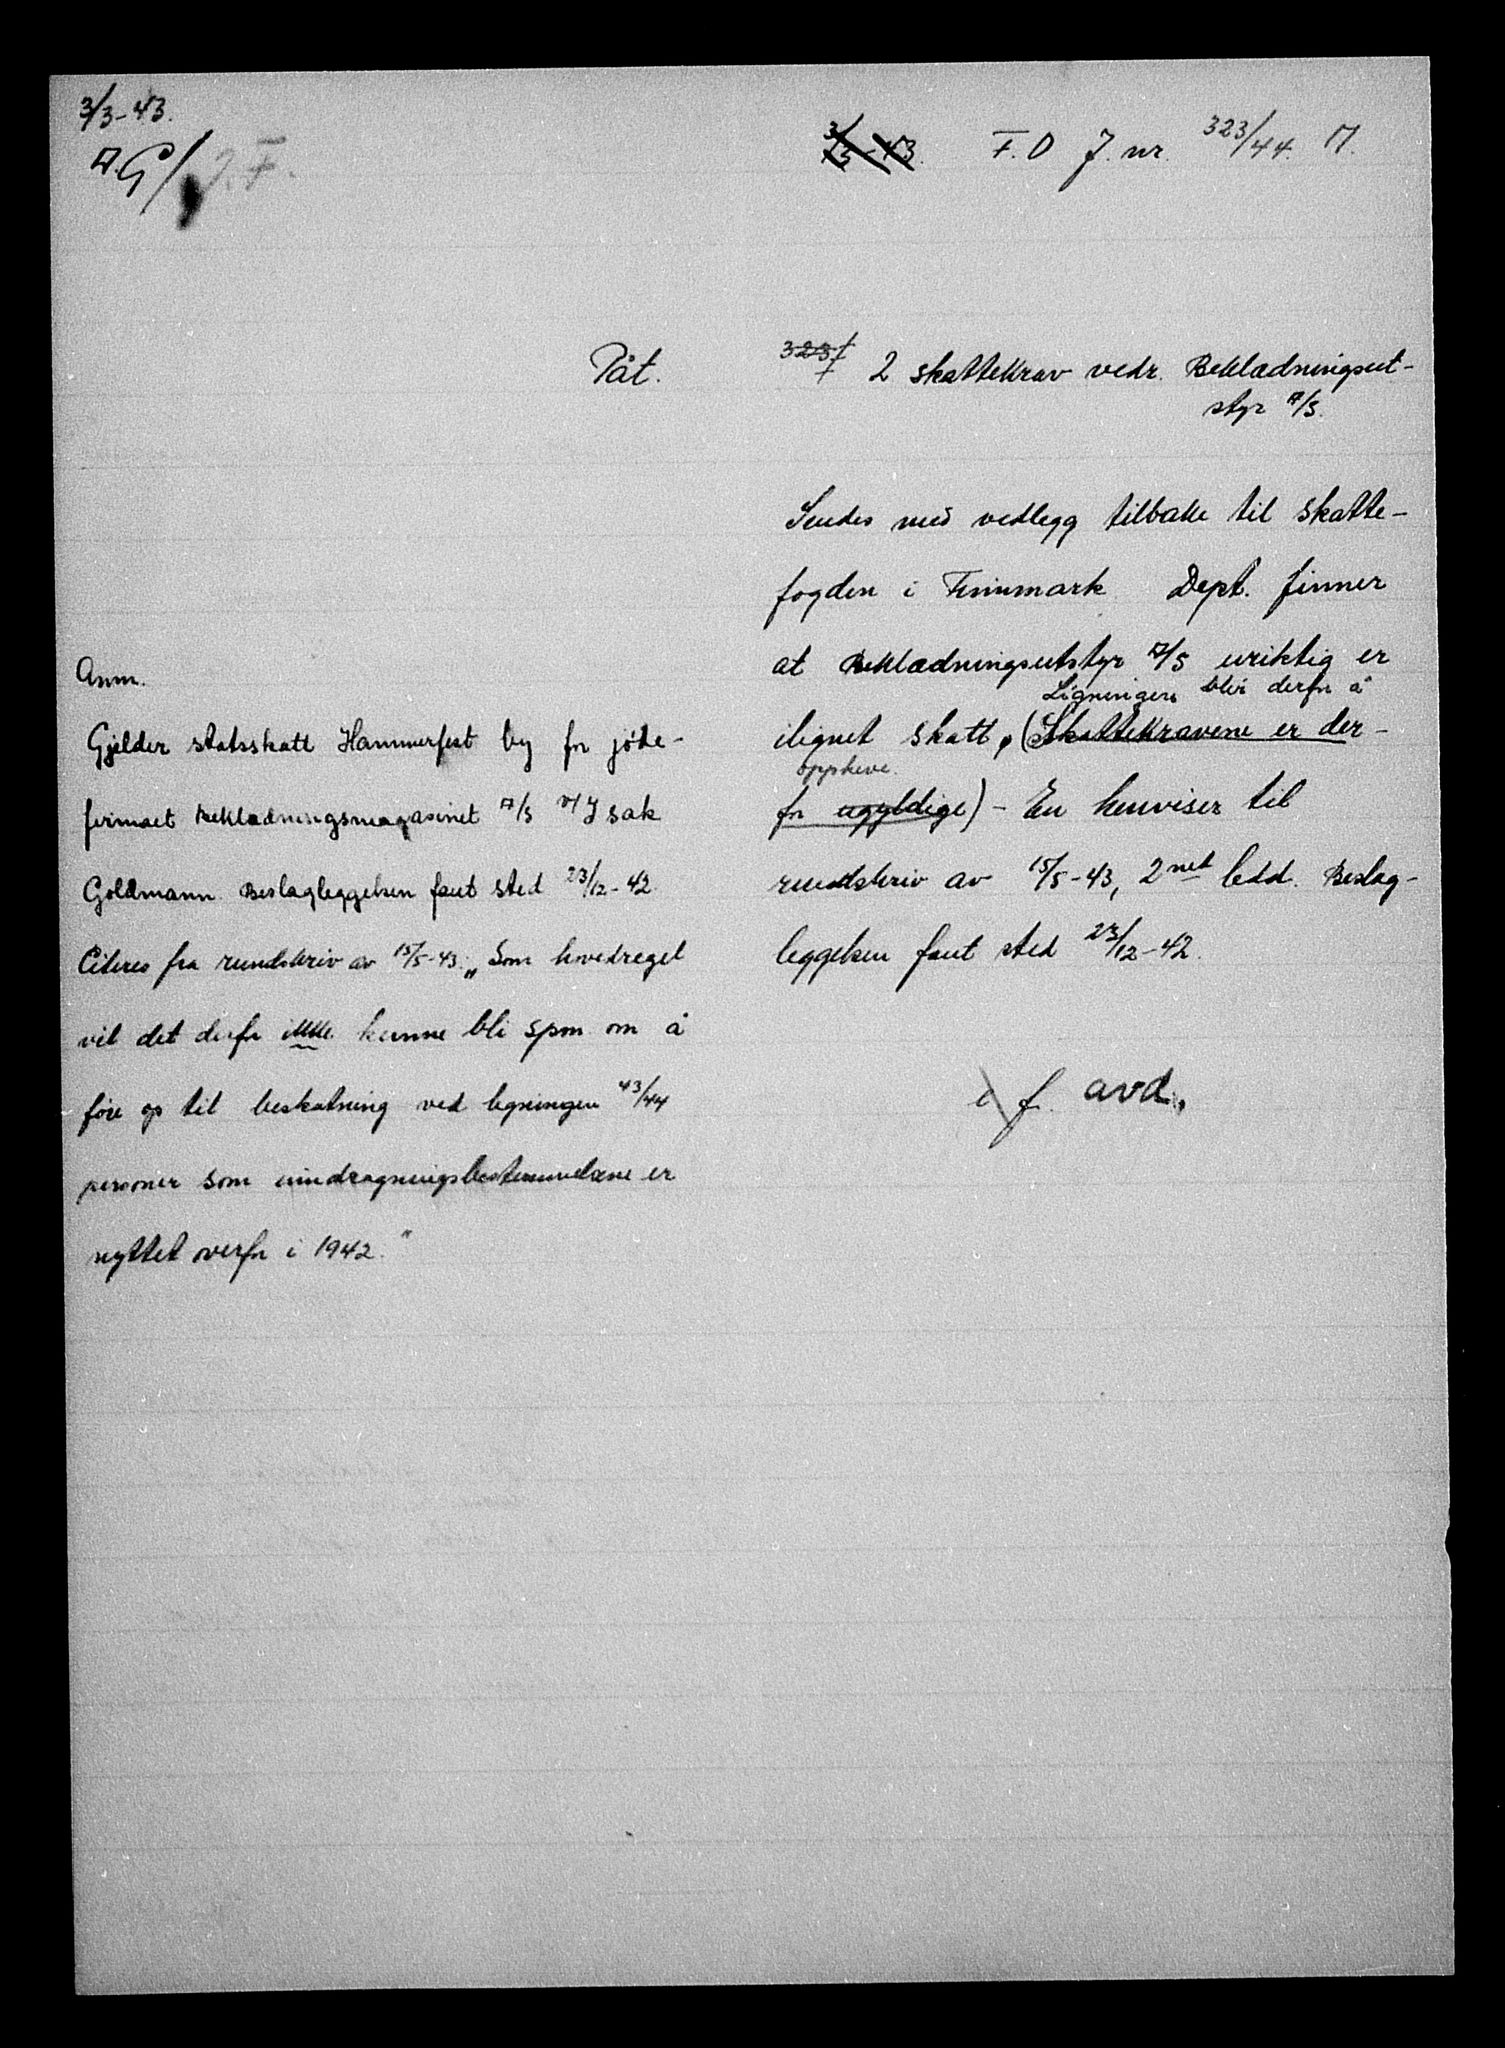 3/3-43.
A.G/J.F.
3/3-43. F.D J. nr. 323/44. M.
Påt.
323/
2 skattekrav vedr. Beklædningsut-
styr A/S.
Sendes med vedlegg tilbake til skatte-
fogden i Finnmark Dept. finner
at Beklædningsutstyr A/S uriktig er
Ligningen blir derfor å
ilignet skatt, (Skattekravene er der-
oppheve.
for ugyldige) - En henviser til
rundskriv av 15/5-43, 2net ledd. Beslag-
leggelsen fant sted 23/12-42.
e f. avd.
Anm.
Gjelder statsskatt Hammerfest by for jøde-
firmaet Beklædningsmagasinet A/S v/ Isak
Goldmann. Beslagleggelsen fant sted 23/12-42
Citeres fra rundskriv av 15/5-43: „Som hovedregel
vil det derfor ikke kunne bli spm om å
føre op til beskatning ved ligningen 43/44
personer som inndragningsbestemmelsene er
nyttet overfor i 1942."